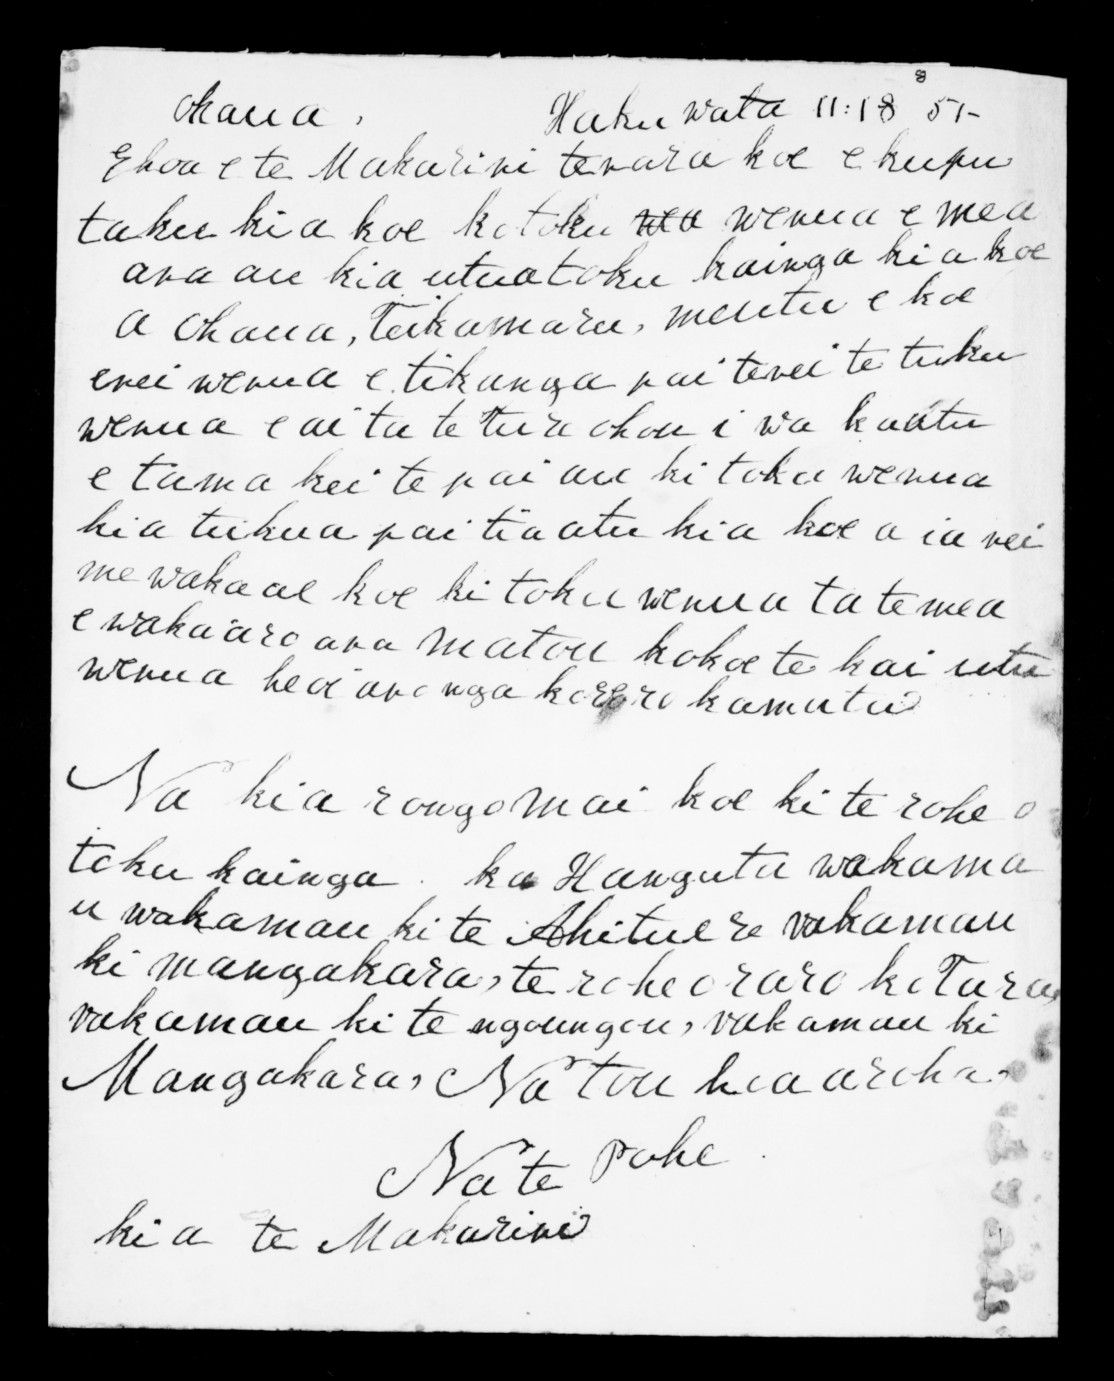 Ohaua, Hakuwata 11:18 51-
8
Ehoa e te Makarini tenara koe e kupu
taku kia koe ko toku wenua e mea
ana au kia utua toku kainga kia koe
a Ohaua, Teikamaru, meutu e koe
enei wenua e tikanga pai tenei te tuku
wenua e ai ta te Ture ohou i wa kaatu
e tama kei te pai au ki toku wenua
kia tukua pai tia atu kia koe a ia nei
me waka ae koe ki toku wenua ta te mea
e wakaaro ana matou kokoe te kai utu
wenua heoi ano nga korero kamutu
Na kia rongo mai koe ki te rohe o
toku kainga. ka Hangutu wakama
u wakamau ki te Ahituere wakamau
ki mangakara, te rohe o raro ko Turau
wakamau ki te ngoungou, wakamau ki
Mangakara, Na tou hoa aroha,
Na te Pohe
kia te Makarini